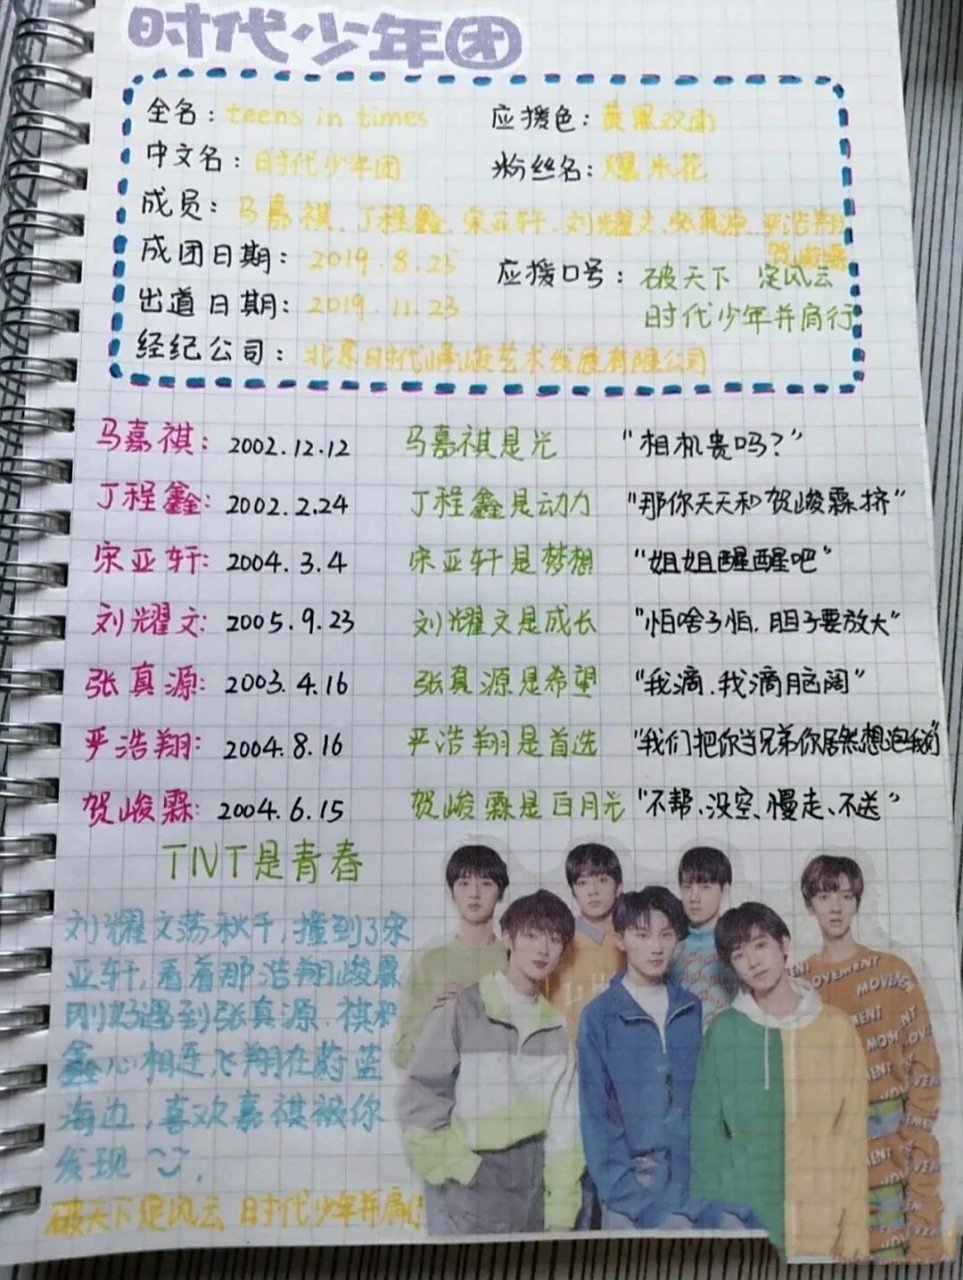 时代少年团
全名：teens in times 应援色：黄黑双面
中文名：时代少年团 粉丝名：爆米花
成员：马嘉祺、丁程鑫、宋亚轩、刘耀文、张真源、严浩翔
贺峻霖
成团日期：2019.8.25 应援口号：破天下 定风云
出道日期：2019.11.23 时代少年并肩行
经纪公司：北京时代峰峻艺术发展有限公司
马嘉祺：2002.12.12 马嘉祺是光 “相机贵吗？”
丁程鑫：2002.2.24 丁程鑫是动力 “那你天天和贺峻霖挤”
宋亚轩：2004.3.4 宋亚轩是梦想 “姐姐醒醒吧”
刘耀文：2005.9.23 刘耀文是成长 “怕啥子怕，胆子要放大”
张真源：2003.4.16 张真源是希望 “我滴、我滴脑阔”
严浩翔：2004.8.16 严浩翔是首选 “我们把你当兄弟你居然想泡我们
贺峻霖：2004.6.15 贺峻霖是白月光 “不帮、没空、慢走、不送”
TNT是青春
刘耀文荡秋千，撞到了宋
亚轩，看着那浩翔峻霖
刚好遇到张真源，祺和
鑫心相连，飞翔在蔚蓝
海边，喜欢嘉祺被你
发现
破天下定风云 时代少年并肩行
MOVEMENT